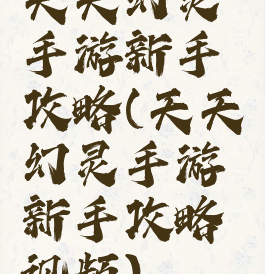 天天幻灵
手游新手
攻略(天天
幻灵手游
新手攻略
视频)